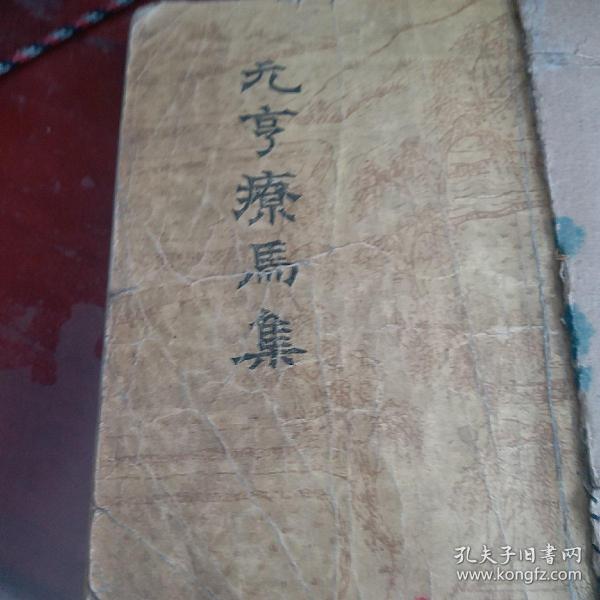 元亨療馬集
孔夫子旧書网
www.kongfz.com